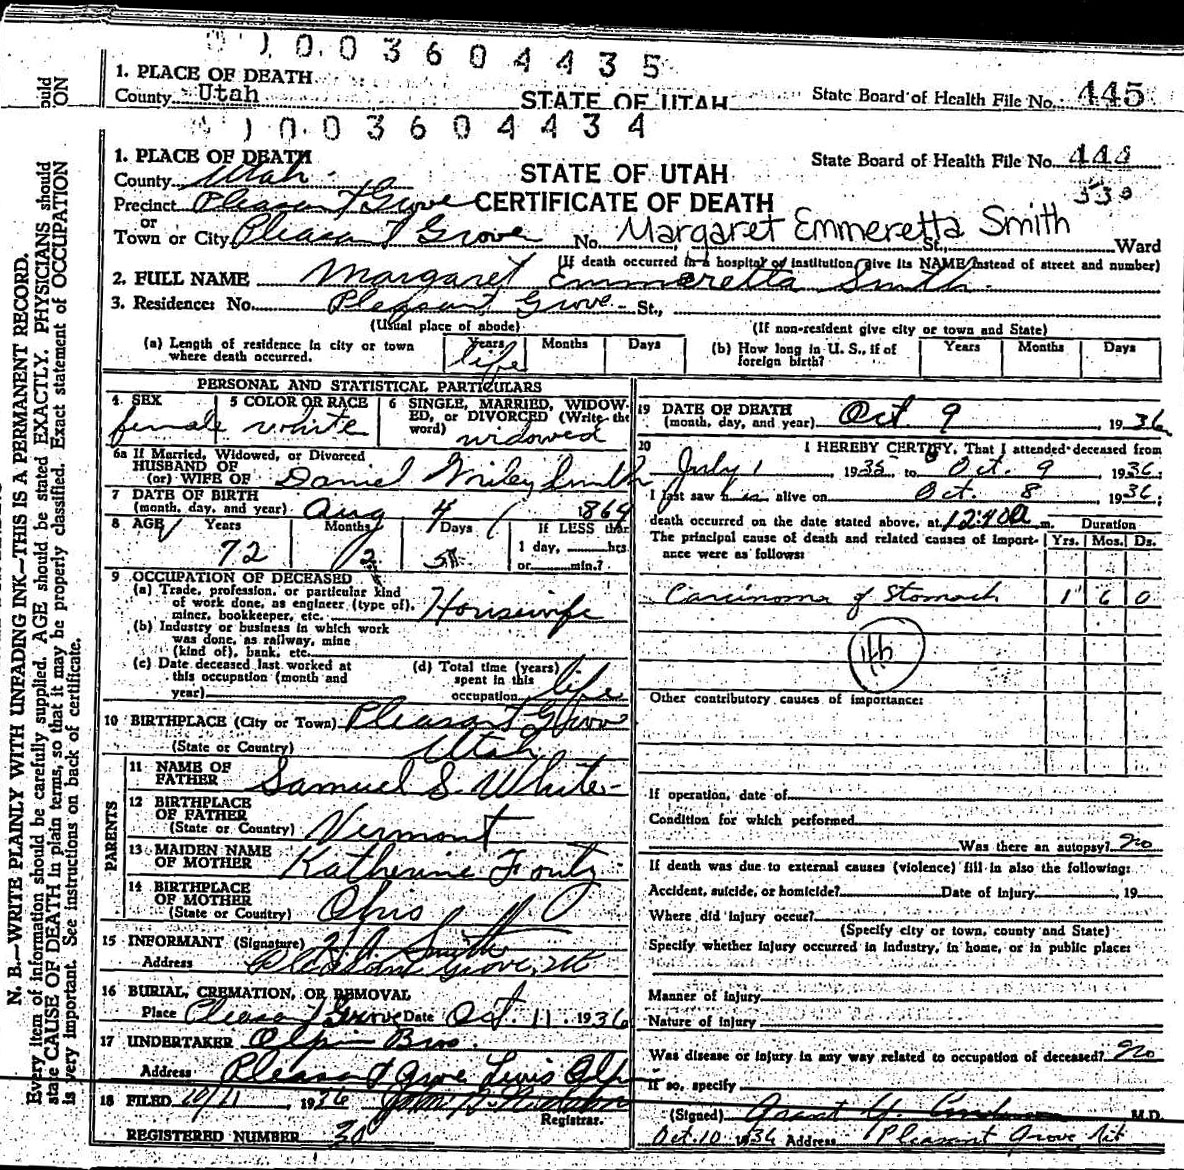 0 ) 0 0 3 6 0 4 4 3 5
1. PLACE OF DEATH
County Utah
STATE OF UTAH
State Board of Health File No. 445
) 0 0 3 6 0 4 4 3 4
1. PLACE OF DEATH
County Utah
STATE OF UTAH
State Board of Health File No.
530
Precinct Pleasant Grove
CERTIFICATE OF DEATH
or
Town or City Pleasant Grove No. Margaret Emmeretta Smith St., Ward
(If death occurred in a hospital or institution, give its NAME instead of street and number)
2. FULL NAME Margaret Emmeretta Smith
3. Residence: No. Pleasant Grove St.,
(Usual place of abode) (If non-resident give city or town and State)
(a) Length of residence in city or town where death occurred. Years life Months Days
(b) How long in U. S., if of foreign birth? Years Months Days
PERSONAL AND STATISTICAL PARTICULARS
4 SEX female
5 COLOR OR RACE white
6 SINGLE, MARRIED, WIDOWED, or DIVORCED (Write the word) widowed
6a If Married, Widowed, or Divorced
HUSBAND OF
(or) WIFE OF Daniel Wiley Smith
7 DATE OF BIRTH
(month, day, and year) Aug 4 1864
8 AGE Years Months Days If LESS than
72 2 5 1 day, hrs.
or min.?
9 OCCUPATION OF DECEASED
(a) Trade, profession, or particular kind
of work done, as engineer (type of),
miner, bookkeeper, etc. Housewife
(b) Industry or business in which work
was done, as railway, mine
(kind of), bank, etc.
(c) Date deceased last worked at
this occupation (month and
year)
(d) Total time (years)
spent in this
occupation life
10 BIRTHPLACE (City or Town) Pleasant Grove
(State or Country) Utah
PARENTS
11 NAME OF
FATHER Samuel S. White
12 BIRTHPLACE
OF FATHER
(State or Country) Vermont
13 MAIDEN NAME
OF MOTHER Katherine Foutz
14 BIRTHPLACE
OF MOTHER
(State or Country) Ohio
15 INFORMANT (Signature) Smith
Address Pleasant Grove, Ut
16 BURIAL, CREMATION, OR REMOVAL
Place Pleasant Grove Date Oct. 11. 1936
17 UNDERTAKER Olpin Bros.
Address Pleasant Grove
18 FILED 10/11 1936
Registrar.
REGISTERED NUMBER 30
19 DATE OF DEATH
(month, day, and year) Oct. 9, 1936
20 I HEREBY CERTIFY, That I attended deceased from
July 1 1935 to Oct. 9 1936.
I last saw h alive on Oct. 8 1936;
death occurred on the date stated above, at 12:40a m. Duration
The principal cause of death and related causes of importance were as follows: Yrs. Mos. Ds.
Carcinoma of Stomach 1 6 0
Other contributory causes of importance:
If operation, date of
Condition for which performed
Was there an autopsy? no
If death was due to external causes (violence) fill in also the following:
Accident, suicide, or homicide? Date of injury , 19
Where did injury occur?
(Specify city or town, county and State)
Specify whether injury occurred in industry, in home, or in public place:
Manner of injury
Nature of injury
Was disease or injury in any way related to occupation of deceased? no
If so, specify
(Signed) Grant Y. Anderson M.D.
Oct. 10 1936 Address Pleasant Grove Ut
N. B.—WRITE PLAINLY WITH UNFADING INK—THIS IS A PERMANENT RECORD.
Every item of information should be carefully supplied. AGE should be stated EXACTLY. PHYSICIANS should
state CAUSE OF DEATH in plain terms, so that it may be properly classified. Exact statement of OCCUPATION
is very important. See instructions on back of certificate.
ould
ON